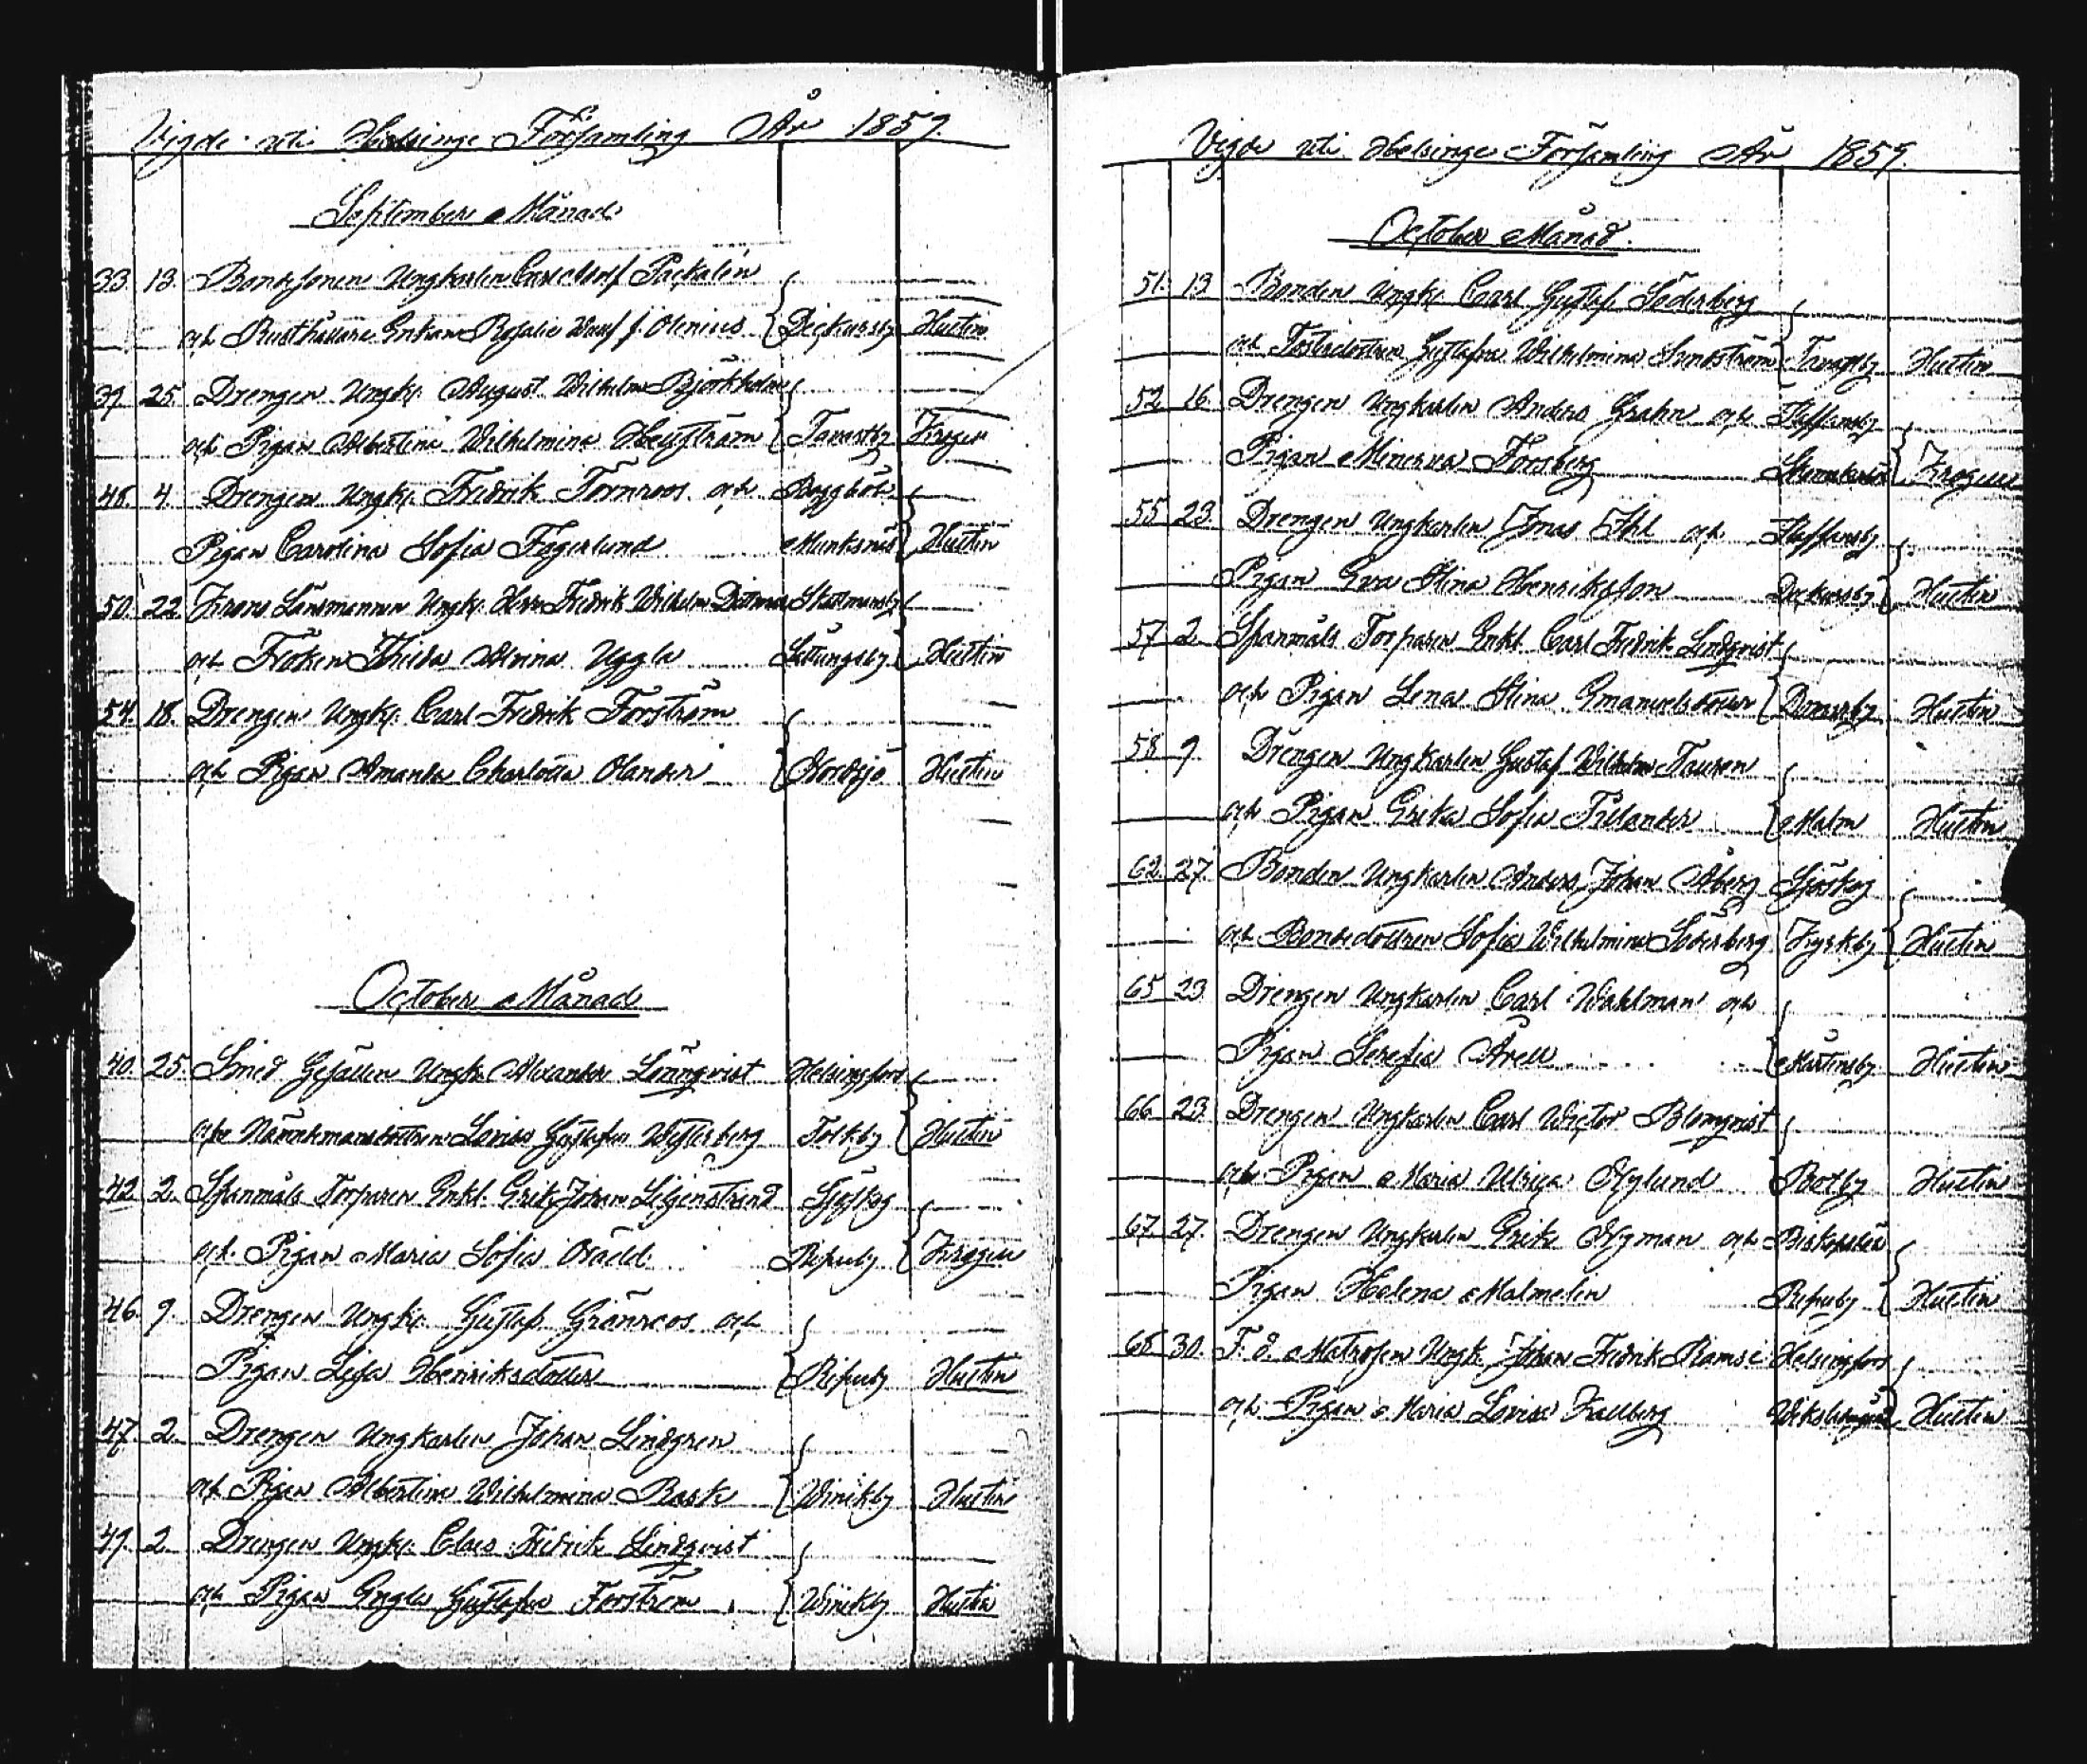 Vigde uti Helsinge Församling År 1859.
September Månad
33. 13. Bondesonen Ungkarlen Carl Adolf Packalén
och Rusthållare Enkan Rosalie Wulf f. Olenius Dickursby Hustin
39. 25. Drengen Ungk. August Wilhelm Björkholm
och Pigan Albertina Wilhelmina Helgström Tavastby Krogius
48. 4. Drengen Ungk. Fredrik Törnroos och Baggböle
Pigan Carolina Sofia Fagerlund Munksnäs Hustin
50. 22. Krono Länsmannen Ungk. Herr Fredrik Wilhelm Dittmar Skattmansby
och Fröken Thilda Alvina Uggla Sottungsby Hustin
54. 18. Drengen Ungk. Carl Fredrik Forström
och Pigan Amanda Charlotta Olander Nordsjö Hustin
October Månad
40. 25. Smed Gesällen Ungk. Alexander Lönnqvist Helsingfors
och Nämndemansdottren Lovisa Gustafva Westerberg Tolkby Hustin
42. 2. Spanmåls Torparen Enkl. Erik Johan Liljenstrand Sjöskog
och Pigan Maria Sofia Ripuby Krogius
46. 9. Drengen Ungk. Gustaf Grönroos och
Pigan Lisa Henriksdotter Ripuby Hustin
47. 2. Drengen Ungkarlen Johan Lindgren
och Pigan Albertina Wilhelmina Rask Winikby Hustin
49. 2. Drengen Ungk. Claes Fredrik Lindqvist
och Pigan Engla Gustafva Forström Winikby Hustin
Vigde uti Helsinge Församling År 1859.
October Månad.
51. 13 Bonden Ungk. Carl Gustaf Söderberg
och Fosterdottren Gustafva Wilhelmina Sundström Tavastby Hustin
52. 16. Drengen Ungkarlen Anders Grahn och Staffansby
Pigan Minerva Forsberg Krogius
55. 23. Drengen Ungkarlen Jonas Ihl och Staffansby
Pigan Eva Stina Henriksson Dickursby Hustin
57. 2. Spanmåls Torparen Enkl. Carl Fredrik Lindqvist
och Pigan Lena Stina Emanuelsdotter Domarby Hustin
58. 9. Drengen Ungkarlen Gustaf Wilhelm Tauren
och Pigan Erika Sofia Frilander Malm Hustin
62. 27. Bonden Ungkarlen Anders Johan Åberg Sjöskog
och Bondedottren Sofia Wilhelmina Söderberg Kyrkby Hustin
65. 23. Drengen Ungkarlen Carl Wahlman och
Pigan Serafia Mårtensby Hustin
66. 23. Drengen Ungkarlen Carl Wictor Blomqvist
och Pigan Maria Ulrica Nylund Botby Hustin
67. 27. Drengen Ungkarlen Erik Nyman och Biskopsböle
Pigan Helena Malmelin Ripuby Hustin
68. 30. F. d. Matrosen Ungk. Johan Fredrik Ramse Helsingfors
och Pigan Maria Lovisa Kallberg Hustin